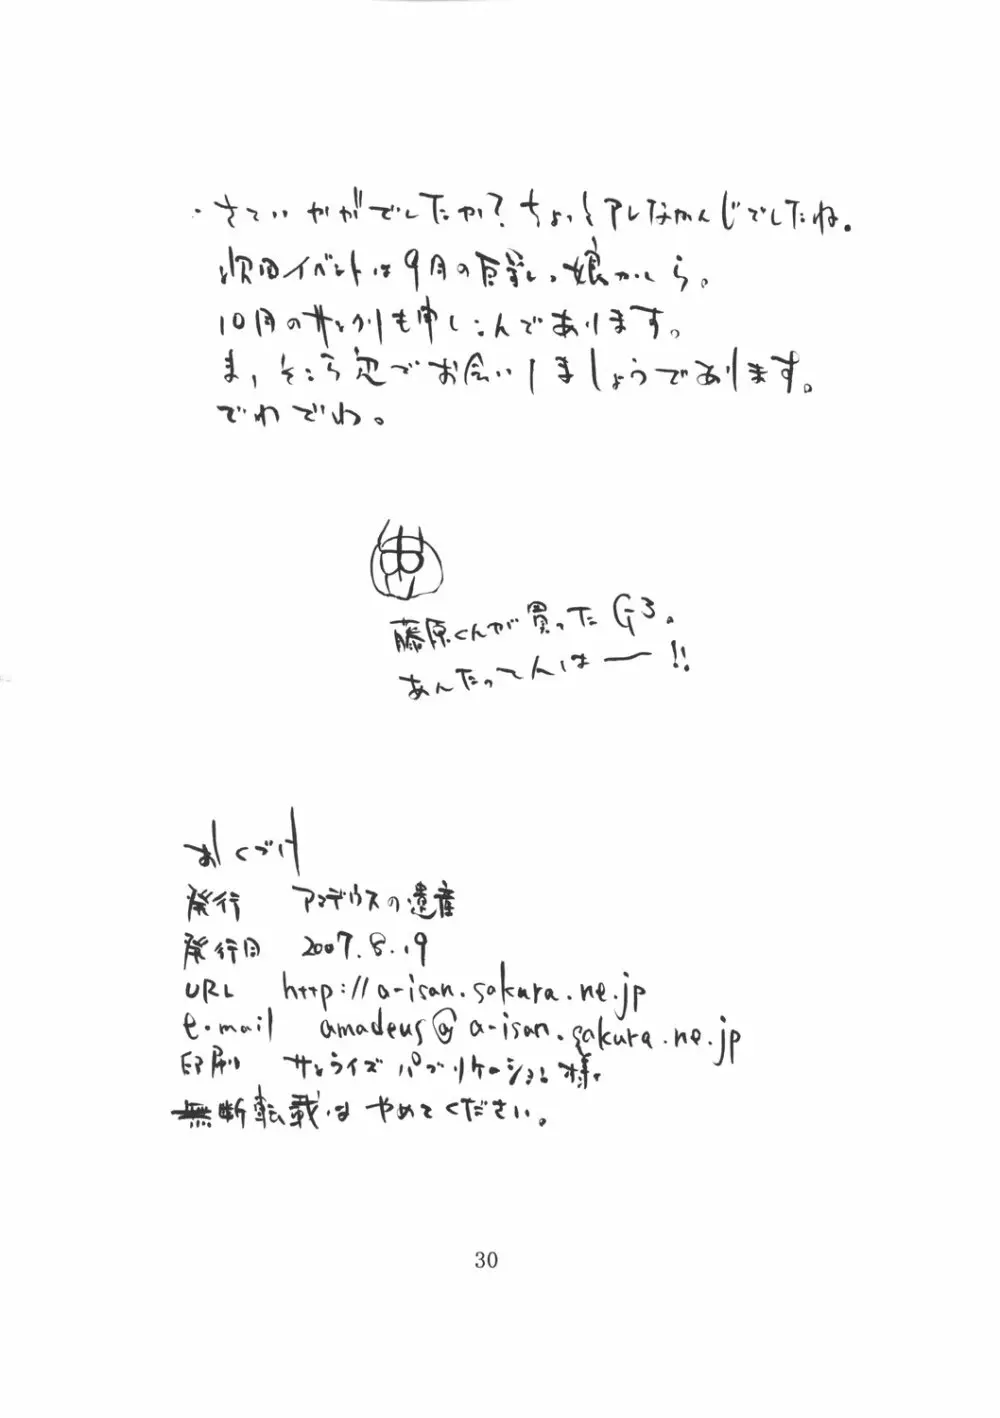 ・さていかがでしたか?ちょっとアレなかんじでしたね。
次回イベントは9月の巨乳っ娘かしら。
10月のサンクリも申しこんであります。
ま、そこら辺でお会いしましょうであります。
でわでわ。
藤原くんが買ったG3。
あんたって人はー!!
おくづけ
発行 アマデウスの遺産
発行日 2007.8.19
URL http://a-isan.sakura.ne.jp
e-mail amadeus@a-isan.sakura.ne.jp
印刷 サンライズパブリケーション様
無断転載はやめてください。
30